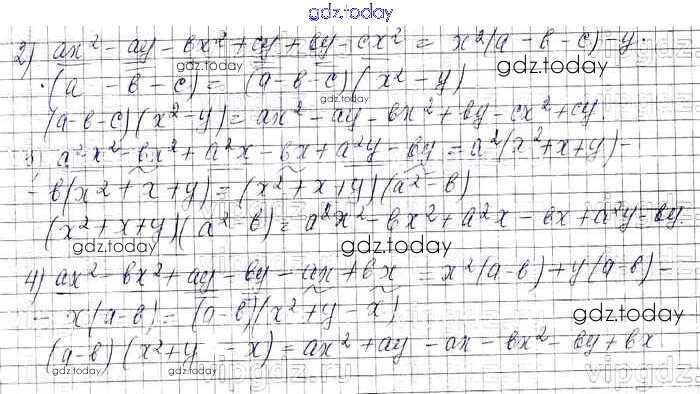 gdz.today
2) ax² - ay - bx² + cy + by - cx² = x²(a - b - c) - y·
·(a - b - c) = (a-b-c)(x² - y)
gdz.today
gdz.today
gdz.today
(a-b-c)(x²-y) = ax² - ay - bx² + by - cx² + cy.
3) a²x² - bx² + a²x - bx + a²y - by = a²(x²+x+y) -
- b(x² + x + y) = (x² + x + y)(a² - b)
(x² + x + y)(a² - b) = a²x² - bx² + a²x - bx + a²y - by.
gdz.today
gdz.today
4) ax² - bx² + ay - by - ax + bx = x²(a-b) + y(a-b) -
- x(a-b) = (a-b)(x² + y - x)
gdz.today
(a-b)(x² + y - x) = ax² + ay - ax - bx² - by + bx.
gdz.today
vipgdz.ru
vipgdz